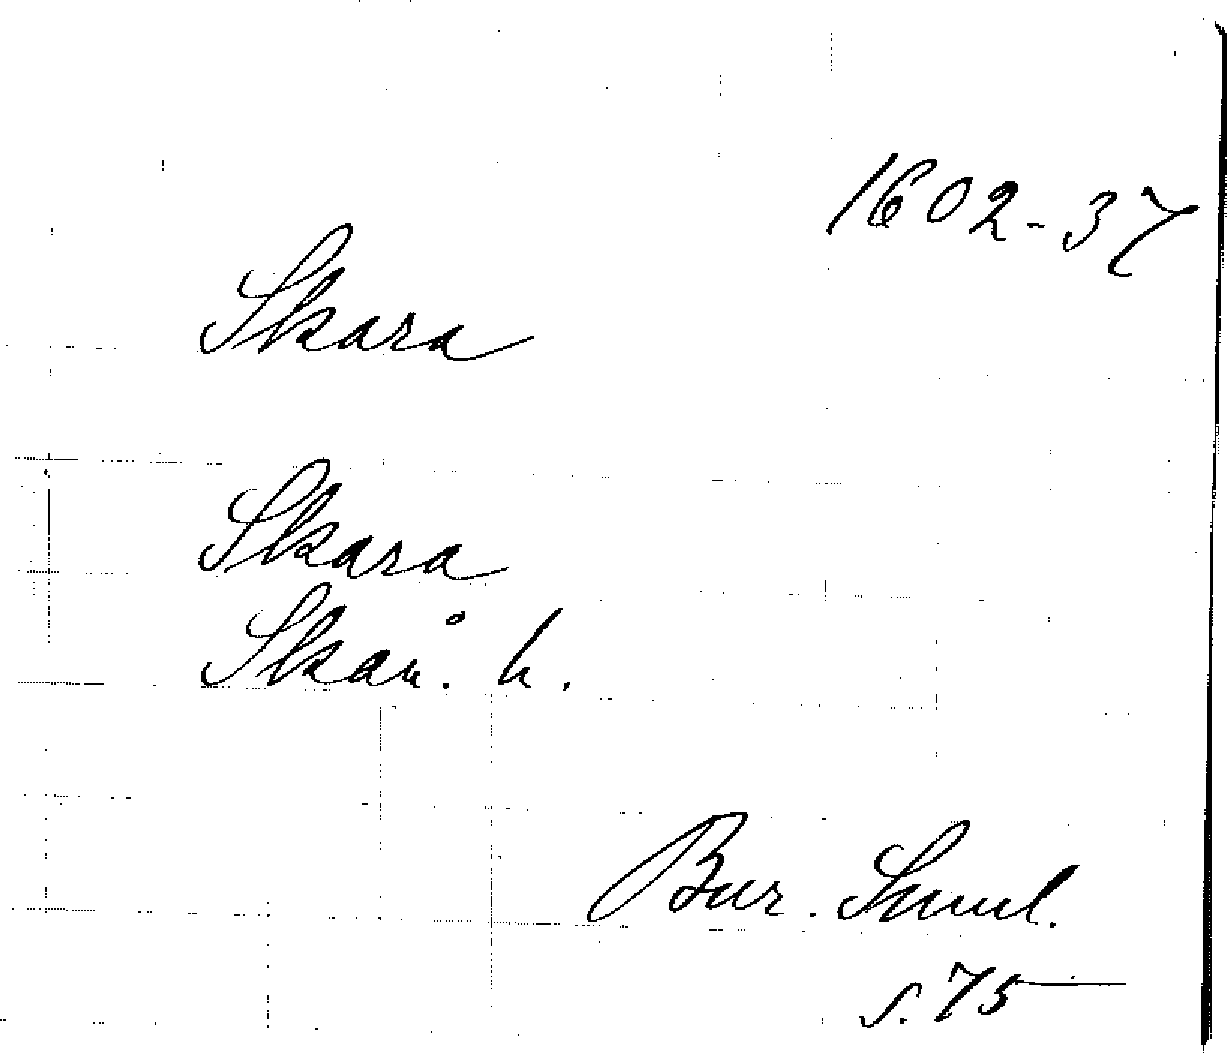 1602-37
Skara
Skara
Skån. h.
Bur. Suml.
s. 75